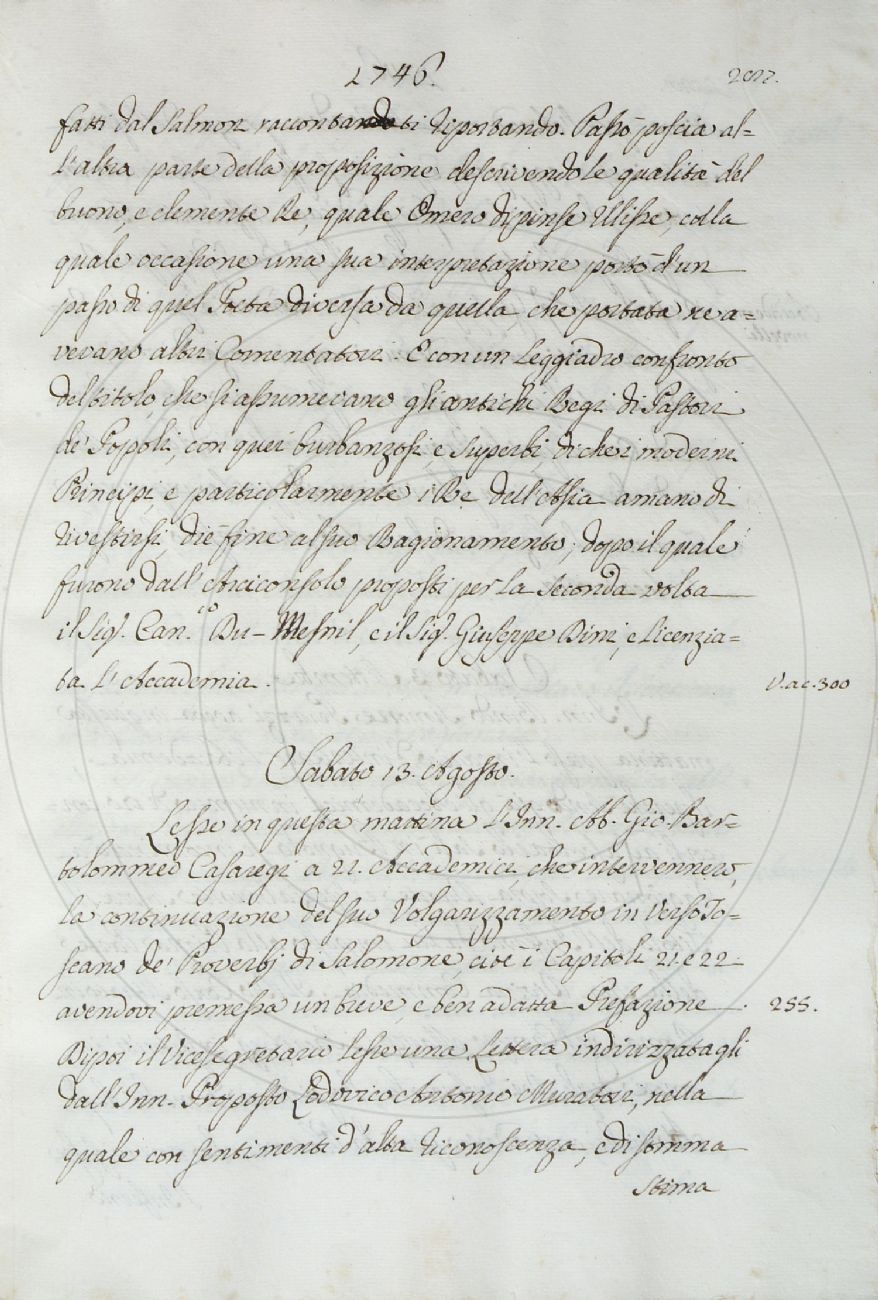 1746.
fatti dal Salmon raccontati riportando. Passò poscia al-
l'altra parte della proposizione descrivendo le qualità del
buono, e clemente Re, quale Omero dipinse Ulisse, colla
quale occasione una sua interpretazione portò d'un
passo di quel Poeta diversa da quella, che portata ne a-
vevano altri Comentatori. E con un leggiadro confronto
del titolo, che si assumevano gli antichi Regi di Pastori
de' Popoli, con quei burbanzosi, e superbi, di che i moderni
Principi, e particolarmente i Re dell'Asia amano di
rivestirsi, diè fine al suo Ragionamento, dopo il quale
furono dall'Arciconsolo proposti per la seconda volta
il Sig.r Can.co Du-Mesnil, e il Sig.r Giuseppe Bini, e licenzia-
ta l'Accademia.
V. a c. 300
Sabato 13. Agosto.
Lesse in questa mattina l'Inn. Ab. Gio. Bar-
tolommeo Casaregi a 21. Accademici, che intervennero,
la continuazione del suo Volgarizzamento in verso To-
scano de' Proverbj di Salomone, cioè i Capitoli 21. e 22.
avendovi premessa un breve, e ben adatta Prefazione.
255.
Dipoi il Vicesegretario lesse una Lettera indirizzatagli
dall'Inn. Proposto Lodovico Antonio Muratori, nella
quale con sentimenti d'alta riconoscenza, e di somma
stima